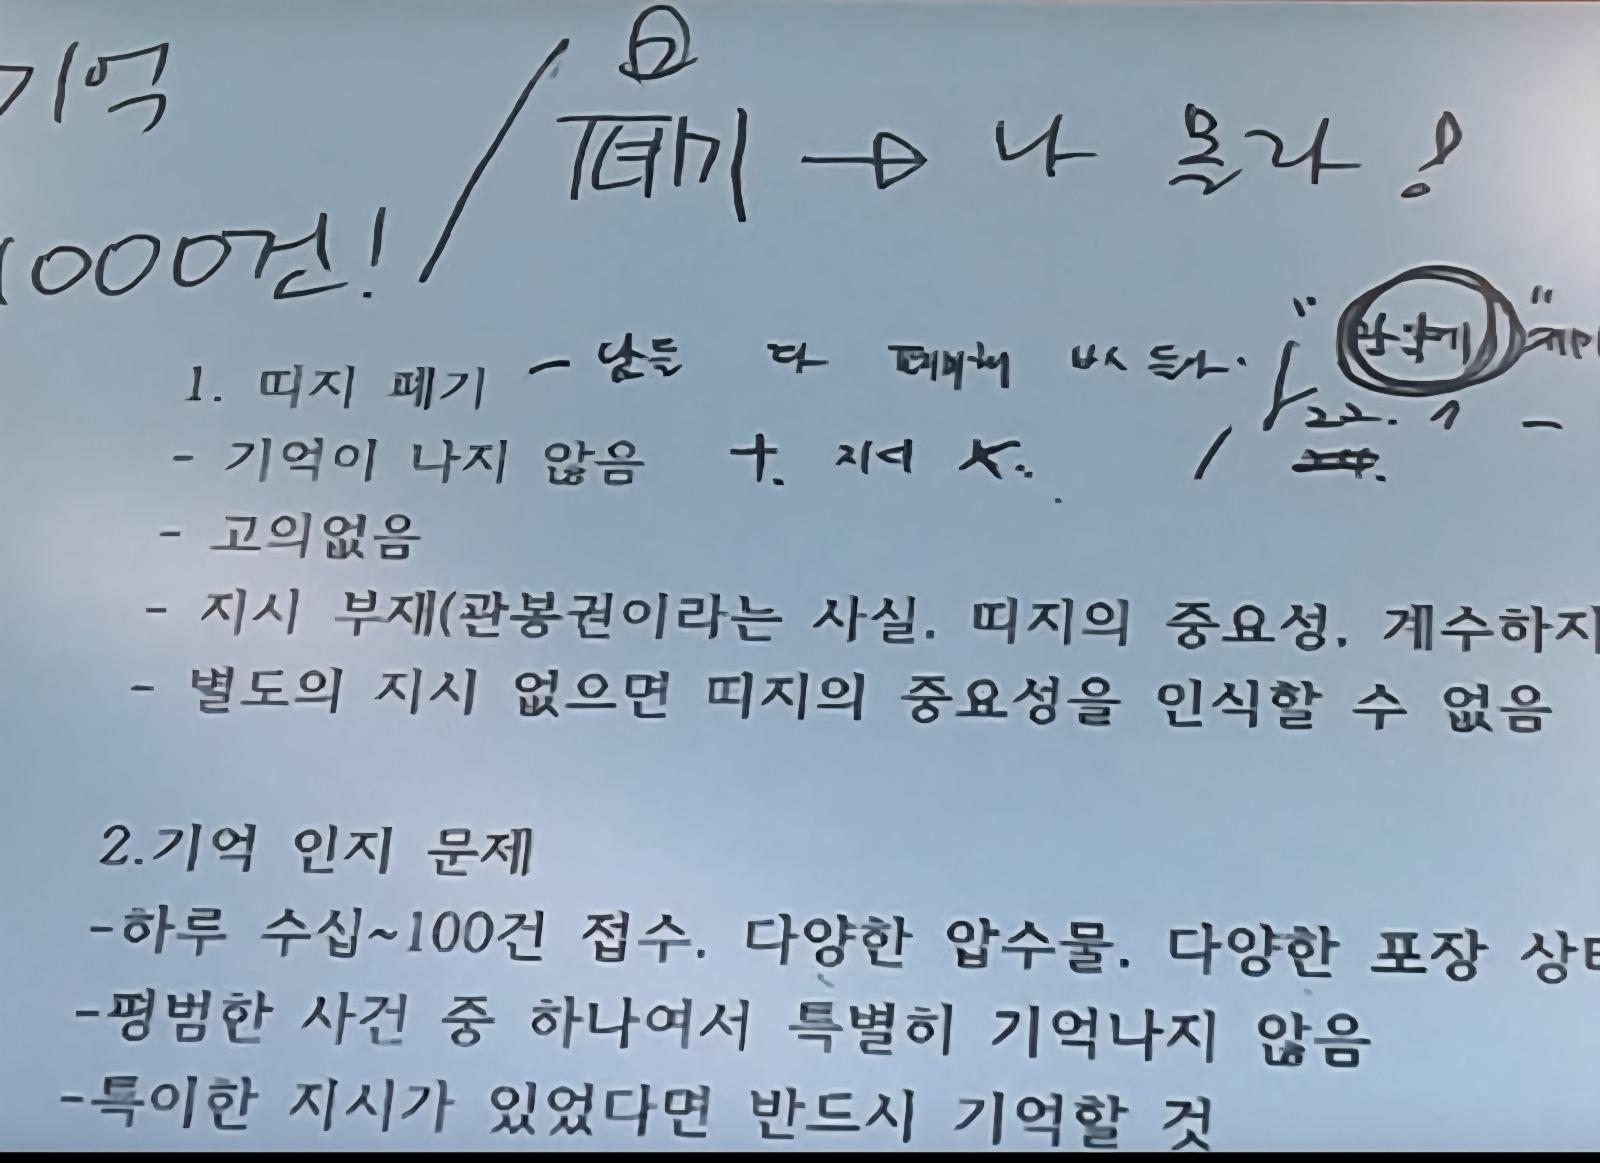 기억
② 폐기 → 나 몰라!
1000건!
1. 띠지 폐기 - 남들 다 폐기해
- 기억이 나지 않음 + 지시 x.
22.
- 고의없음
- 지시 부재(관봉권이라는 사실. 띠지의 중요성. 계수하지
- 별도의 지시 없으면 띠지의 중요성을 인식할 수 없음
2.기억 인지 문제
-하루 수십~100건 접수. 다양한 압수물. 다양한 포장 상태
-평범한 사건 중 하나여서 특별히 기억나지 않음
-특이한 지시가 있었다면 반드시 기억할 것